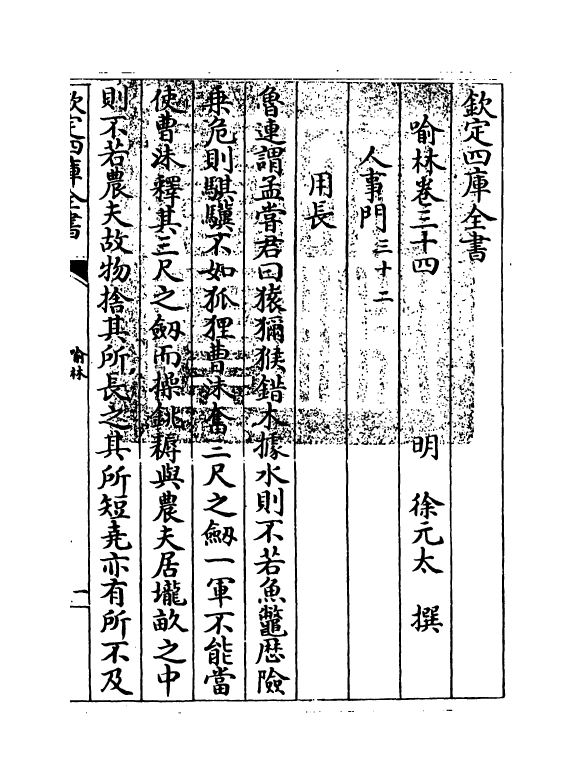 欽定四庫全書
喻林卷三十四
明 徐元太 撰
人事門三十二
用長
魯連謂孟嘗君曰猿獮猴錯木據水則不若魚鼈歴險
乗危則騏驥不如狐狸曹沬奮三尺之劒一軍不能當
使曹沬釋其三尺之劒而操銚耨與農夫居壠畝之中
則不若農夫故物捨其所長之其所短堯亦有所不及
欽定四庫全書
喻林
一